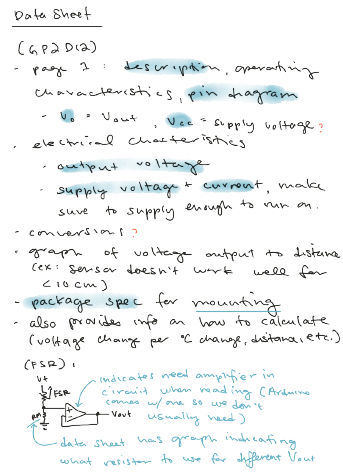 Data Sheet
(GP2D12)
- page 1: description, operating
characteristics, pin diagram
- Vo = Vout, Vcc = supply voltage?
- electrical charcteristics
- output voltage
- supply voltage + current, make
sure to supply enough to run on.
- conversions?
- graph of voltage output to distance
(ex: sensor doesn't work well for
<10cm)
- package spec for mounting
- also provides info on how to calculate
(voltage change per °C change, distance, etc.)
(FSR):
V+
FSR
RM
Vout
indicates need amplifier in
circuit when reading (Arduino
comes w/ one so we don't
usually need)
data sheet has graph indicating
what resistor to use for different Vout